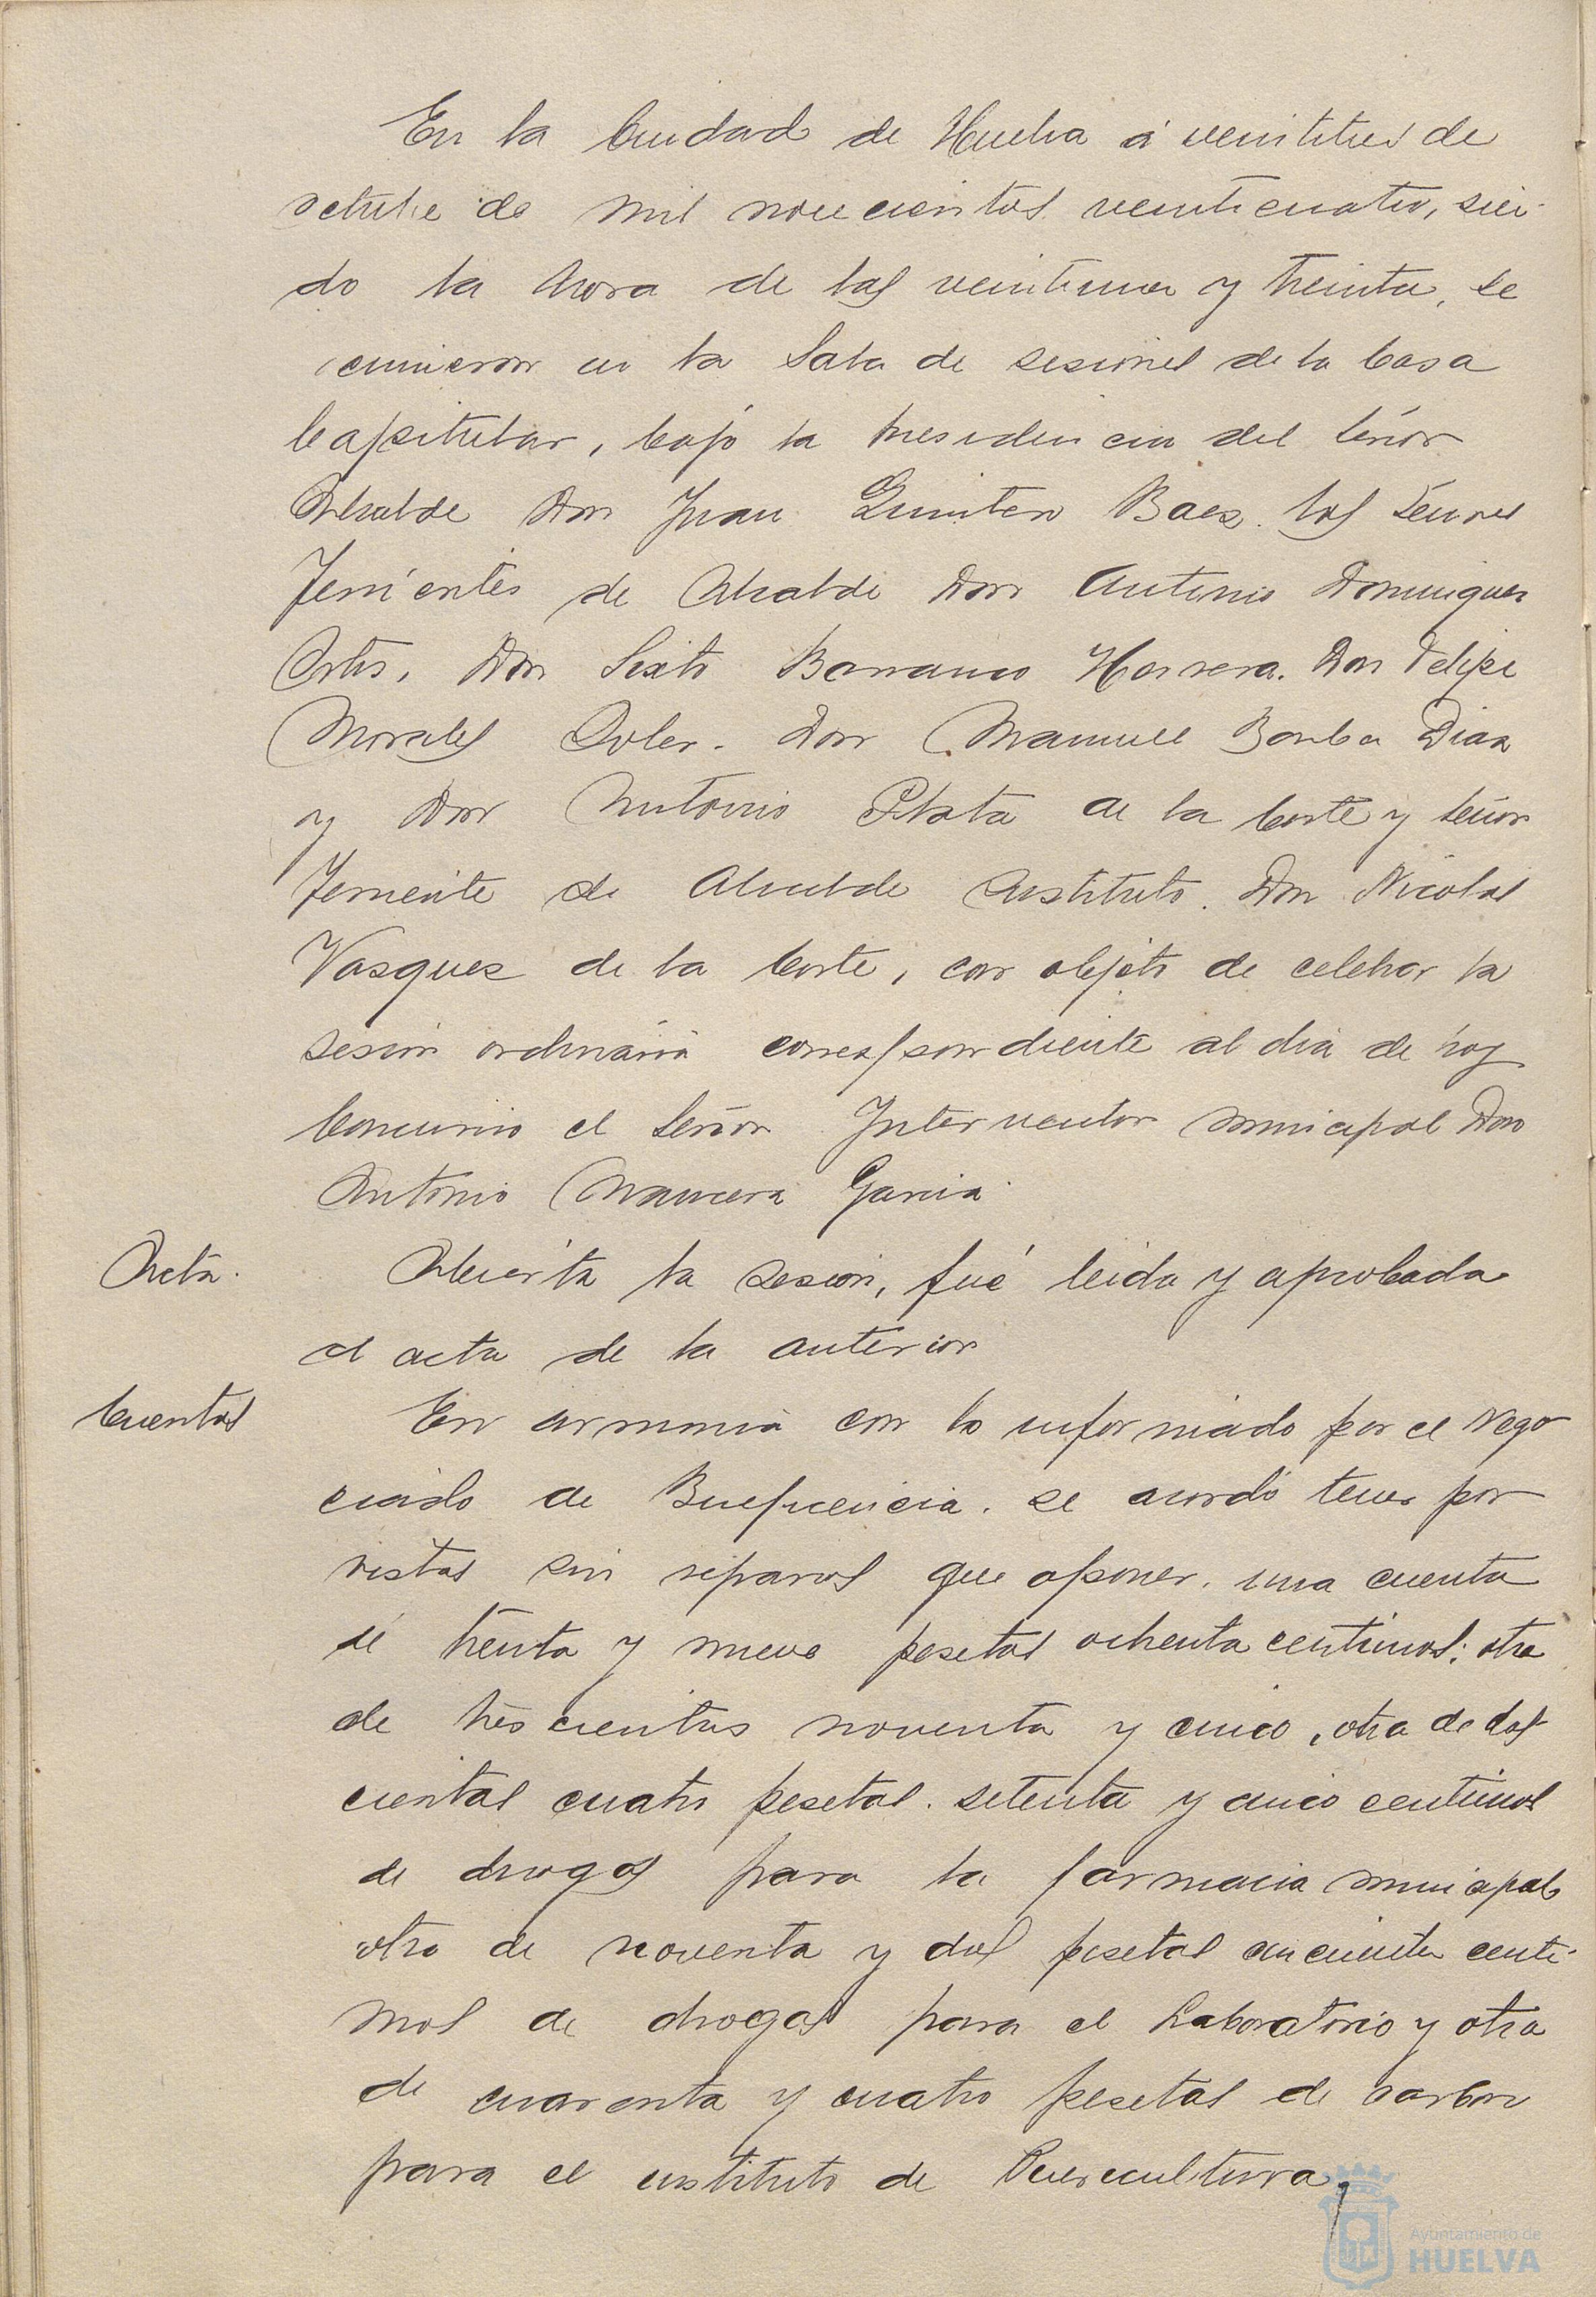 En la Ciudad de Huelva á veintitres de
octubre de mil novecientos veinticuatro, sien-
do la hora de las veintiuna y treinta, se
reunieron en la Sala de sesiones de la Casa
Capitular, bajo la presidencia del Señor
Alcalde Don Juan Quintero Baez. los Señores
Tenientes de Alcalde Don Antonio Dominguez
Ortis, Don Sixto Barranco Herrera. Don Felipe
Morales Soler. Don Manuel Borba Diaz
y Don Antonio Plata de la Corte y Señor
Teniente de Alcalde sustituto. Don Nicolas
Vasquez de la Corte, con objeto de celebrar la
sesion ordinaria correspondiente al dia de hoy
Concurrio el Señor Interventor municipal Don
Antonio Mancera Garcia.
Acta.
Abierta la sesion, fué leida y aprobada
el acta de la anterior
Cuentas
En armonia con lo informado por el Nego
ciado de Beneficencia. se acordó tener por
vistas sin reparos que oponer. una cuenta
de treinta y nueve pesetas ochenta centimos; otra
de trescientas noventa y cinco, otra de dos
cientas cuatro pesetas. setenta y cinco centimos
de drogas para la farmacia municipal
otra de noventa y dos pesetas cincuenta centi-
mos de drogas para el Laboratorio y otra
de cuarenta y cuatro pesetas de carbon
para el instituto de Puericultura,
Ayuntamiento de
HUELVA